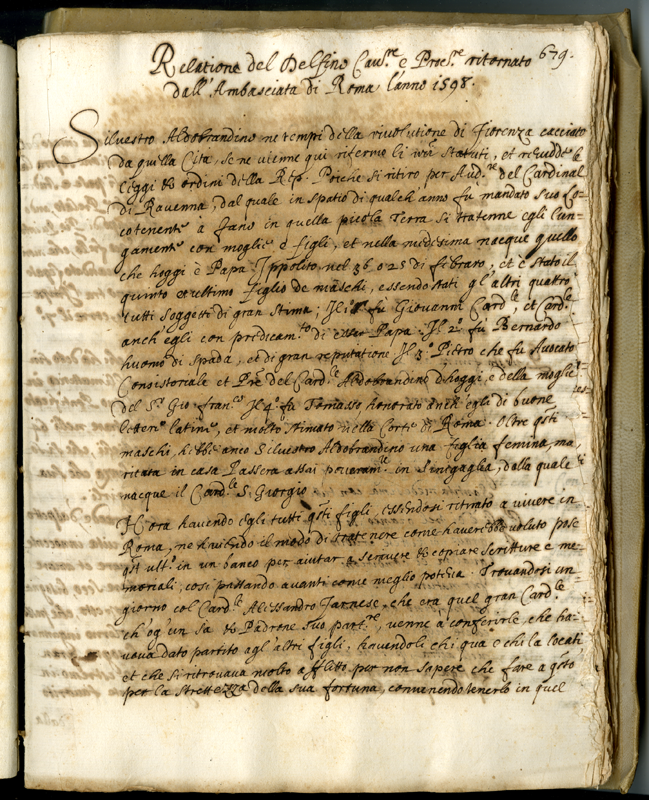 Relatione del Delfino Cau.re e Proc.re ritornato 679.
dall'Ambasciata di Roma l'anno 1598.
Siluestro Aldobrandino ne tempi della riuolutione di Fiorenza cacciato
da quella Città, se ne uienne qui riformo li Statuti, et reuedde le
leggi et ordini della Rep. Poiche si ritiro per Aud.re del Cardinal
di Rauenna, dal quale in spatio di qualch'anno fu mandato suo Lo=
cotenente à fano in quella picola Terra si trattenne egli lun=
gamente con moglie e figli, et nella medesima nacque quello
che hoggi è Papa Ippolito nel 36 o 25 di febraro, et è stato il
quinto et ultimo figlio de maschi, essendo stati gl'altri quattro
tutti soggetti di gran stima; Il p.o fu Giouanni Card.le, et Card.le
anch'egli con predicam.to di Papa. Il 2.o fu Bernardo
huomo di spada, et di gran reputatione Il 3.o Pietro che fu Auocato
Consistoriale et P.re del Card.le Aldobrandino d'hoggi, e della moglie
del S.r Gio: fran.co Il 4.o fu Tomasso honorato anch'egli di buone
lettere latine, et molto stimato nella Corte di Roma. Oltre q.sti
maschi, hebbe anco Siluestro Aldobrandino una figlia femina, ma=
ritata in casa Passera assai poueram.te in Sinegaglia, dalla quale
nacque il Card.le S. Giorgio
Hora hauendo egli tutti q.sti figli, essendosi ritirato a uiuere in
Roma, ne hauendo il modo di trattenere come hauerebbe uoluto pose
q.st'ult.o in un banco per aiutar a scriuere et copiare scritture e me=
moriali, così passando auanti come meglio poteua. Trouandosi un
giorno col Card.le Alessandro Farnese, che era quel gran Card.le
ch'og'un sa et Padrone suo part.re, uenne a conferirle che ha=
ueua dato partito agl'altri figli, hauendoli chi qua e chi la locati
et che si ritrouaua molto afflitto per non sapere che fare a q.sto
per la strettezza della sua fortuna, conuenendo tenerlo in quel